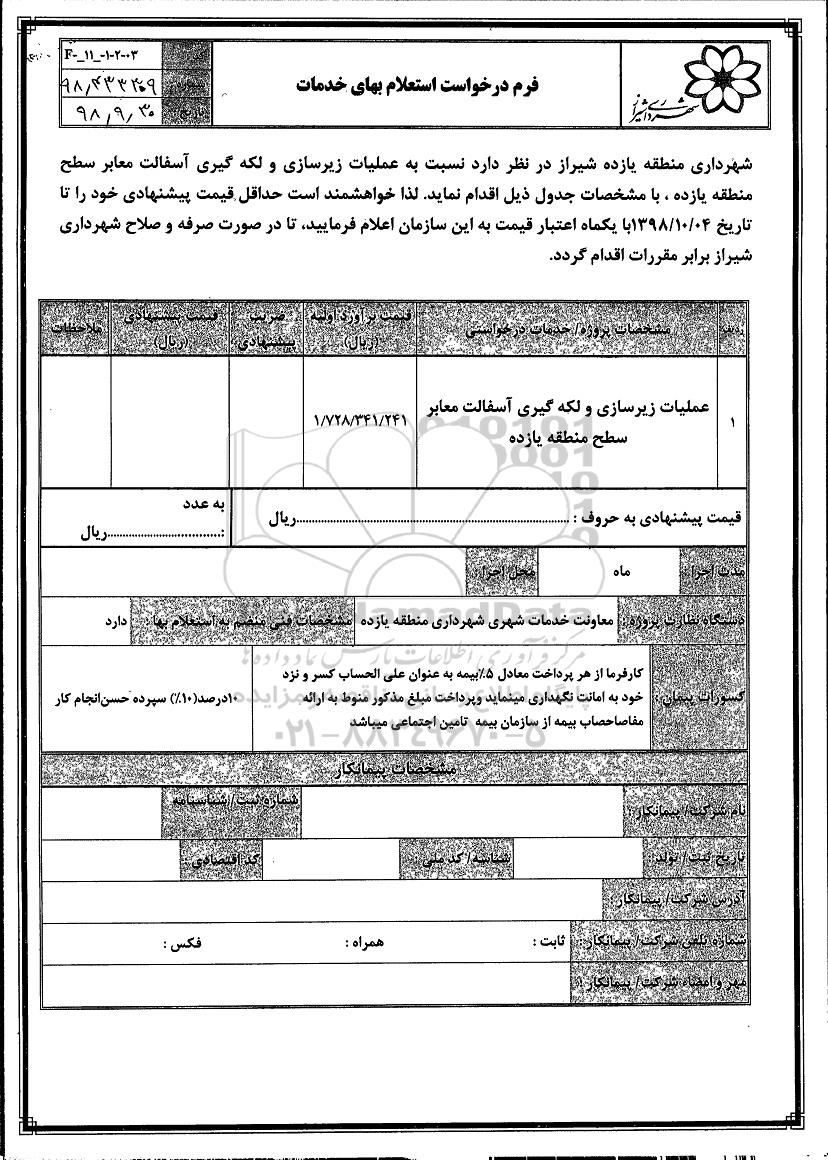 شهرداری شیراز
فرم درخواست استعلام بهای خدمات
F-_11_-1-2-03
۹۸/۹/۳۰
شهرداری منطقه یازده شیراز در نظر دارد نسبت به عملیات زیرسازی و لکه گیری آسفالت معابر سطح
منطقه یازده ، با مشخصات جدول ذیل اقدام نماید. لذا خواهشمند است حداقل قیمت پیشنهادی خود را تا
تاریخ ۱۳۹۸/۱۰/۰۴با یکماه اعتبار قیمت به این سازمان اعلام فرمایید، تا در صورت صرفه و صلاح شهرداری
شیراز برابر مقررات اقدام گردد.
ردیف
مشخصات پروژه/ خدمات درخواستی
قیمت برآورد اولیه
(ریال)
ضریب
پیشنهادی
قیمت پیشنهادی
(ریال)
ملاحظات
۱
عملیات زیرسازی و لکه گیری آسفالت معابر
سطح منطقه یازده
۱/۷۲۸/۳۴۱/۲۴۱
قیمت پیشنهادی به حروف : ........................................ریال
به عدد
:..................................ریال
مدت اجرا :
ماه
محل اجرا :
دستگاه نظارت پروژه :
معاونت خدمات شهری شهرداری منطقه یازده
مشخصات فنی منضم به استعلام بها :
دارد
کسورات پیمان :
کارفرما از هر پرداخت معادل ۵٪بیمه به عنوان علی الحساب کسر و نزد
خود به امانت نگهداری مینماید وپرداخت مبلغ مذکور منوط به ارائه
مفاصاحصاب بیمه از سازمان بیمه تامین اجتماعی میباشد
۱۰درصد(۱۰٪) سپرده حسن‌انجام کار
مشخصات پیمانکار
نام شرکت/ پیمانکار :
شماره ثبت/ شناسنامه
تاریخ ثبت/ تولد :
شناسه/ کد ملی :
کد اقتصادی :
آدرس شرکت/ پیمانکار :
شماره تلفن شرکت/ پیمانکار :
ثابت :
همراه :
فکس :
مهر و امضاء شرکت/ پیمانکار :
۰۲۱-۸۸۳۴۹۶۷۰-۵